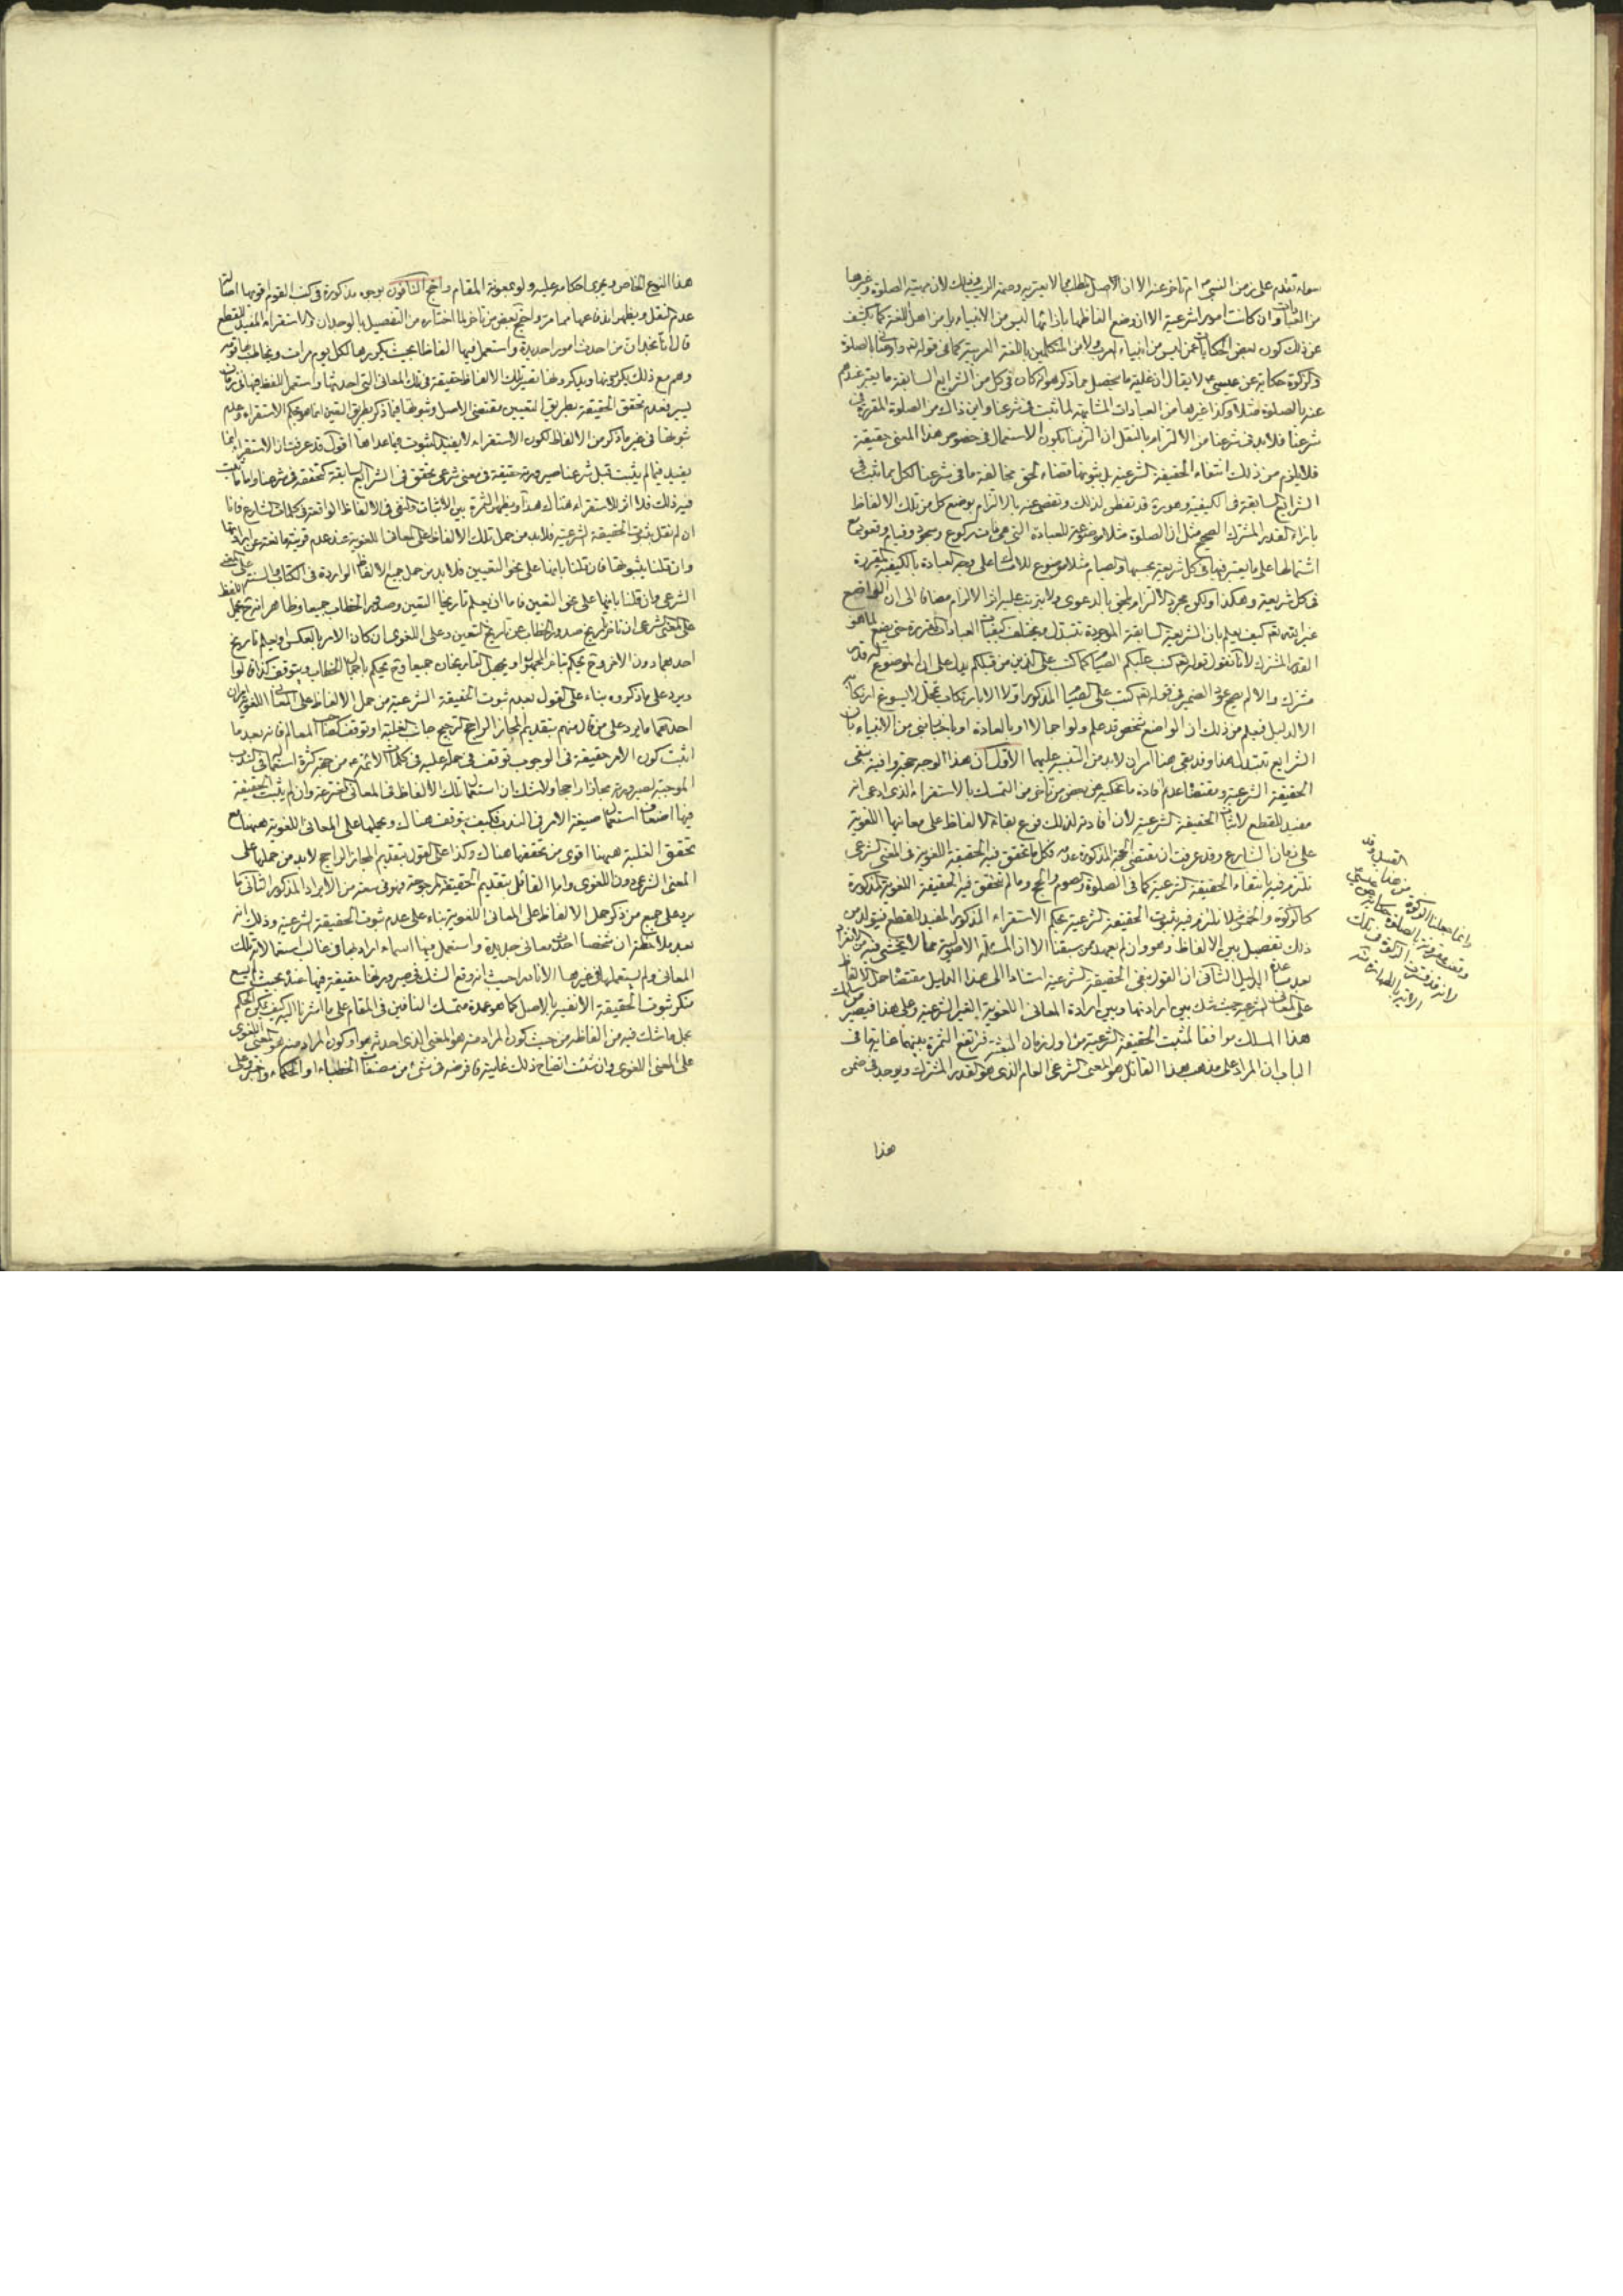 سواء تقدم على زمن النبي ص ام تاخر عنه الا ان الاصل
من العبادات وان كانت امورا شرعية الا ان وضع الفاظها بازائها ليس من الانبياء بل من اهل اللغة كما يكشف
عن ذلك كون بعض الحكايات عمن ليس من انبياء العرب ولا من المتكلمين باللغة العربية كما في قوله تعالى واوصاني بالصلوة
والزكوة حكاية عن عيسى لا يقال ان غاية ما يحصل مما ذكر هو انه كان في كل من الشرايع السابقة ما يعبر عندهم
عنه بالصلوة مثلا وكذا غيرها من العبادات المشابهة لما ثبت في شرعنا واين ذاك من الصلوة المقررة في
شرعنا فلابد في شرعنا من الالتزام بالنقل ان التزمنا بكون الاستعمال في خصوص هذا المعنى حقيقة
فلا يلزم من ذلك انتفاء الحقيقة الشرعية بل ثبوتها قضاء لحق مخالفة ما في شرعنا لكل ما ثبت في
الشرايع السابقة في الكيفية وهورة قد تفطن لذلك وتفصى عنه بالالتزام بوضع كل من تلك الالفاظ
بازاء القدر المشترك الصحيح مثل ان الصلوة مثلا موضوعة للعبادة التي هي ذات ركوع وسجود وقيام وقعود مع
اشتمالها على ما يعتبر فيها في كل شريعة بحسبها والصيام مثلا موضوع للامساك على وجه العبادة بالكيفية المقررة
في كل شريعة وهكذا ولكن مجرد الالتزام ملحق بالدعوى ولا يترتب عليه اثر الالزام مضافا الى ان الواضع
غير الله تعالى كيف يعلم بان الشريعة السابقة الموجودة تتبدل ويختلف كيفيات العبادات المقررة حتى يضع لما هو
القدر المشترك لانا نقول قوله تعالى كتب عليكم الصيام كما كتب على الذين من قبلكم يدل على ان الموضوع له قدر
مشترك والا لم يصح عود الضمير في قوله تعالى كتب على الصيام المذكور اولا الا بارتكاب تمحل لا يسوغ ارتكابه
الا لدليل فيعلم من ذلك ان الواضع بشخصه قد علم ولو اجمالا او بالعادة او باخبار نبي من الانبياء بان
الشرايع تتبدل هذا وقد بقي هنا امران لابد من التنبيه عليهما الاول ان هذا الوجه حجة وافية بنفي
الحقيقة الشرعية ومقتضاه عدم افادة ما نحكيه عن بعض من تاخر من التمسك بالاستقراء الذي ادعى انه
مفيد للقطع لاثبات الحقيقة الشرعية لان افادته لذلك فرع بقاء الالفاظ على معانيها اللغوية
على زمان الشارع وقد عرفت ان مقتضى الحجة المذكورة عدمه فكل ما تحقق فيه الحقيقة اللغوية في المعنى الشرعي
نلتزم فيه بانتفاء الحقيقة الشرعية كما في الصلوة والصوم والحج وما لم تتحقق فيه الحقيقة اللغوية المذكورة
كالزكوة والخمس مثلا نلتزم فيه بثبوت الحقيقة الشرعية بحكم الاستقراء المذكور المفيد للقطع فيتولد من
ذلك تفصيل بين الالفاظ وهو وان لم يعهد ممن سبقنا الا ان المسئلة الاصولية مما لا يختشى فيه من الانفراد
بعد مساعدة الدليل الثاني ان القول بنفي الحقيقة الشرعية استنادا الى هذا الدليل مقتضاه حمل الالفاظ
على المعاني الشرعية حيث شك بين ارادتها وبين ارادة المعاني اللغوية الغير الشرعية وعلى هذا فيصير من سلك
هذا المسلك موافقا لمثبت الحقيقة الشرعية من اول زمان البعثة فترتفع الثمرة بينهما غاية ما في
الباب ان المراد على مذهب هذا القائل هو المعنى الشرعي العام الذي هو القدر المشترك ويوجد في ضمن
هذا
وانما جعلنا الزكوة من هذا القبيل
هذا النوع الخاص ويجري احكامه عليه ولو بمعونة المقام واحتج النافون بوجوه مذكورة في كتب القوم اقويها اصالة
عدم النقل ويظهر اندفاعها مما مر واحتج بعض من تاخر لما اختاره من التفصيل بالوجدان والاستقراء المفيد للقطع
قال انا نجد ان من احدث امورا جديدة واستعمل فيها الفاظا بحيث يكررها كل يوم مرات ويخاطب بها قومه
وهم مع ذلك يكررونها ويذكرونها تصير تلك الالفاظ حقيقة في تلك المعاني التي احدثها واستعمل اللفظ فيها في زمان
يسير فعدم تحقق الحقيقة بطريق التعيين مقتضى الاصل وثبوتها فيما ذكر بطريق التعين انما هو بحكم الاستقراء وعدم
ثبوتها في غير ما ذكر من الالفاظ لكون الاستقراء لا يفيد الثبوت فيما عداها اقول قد عرفت ان الاستقراء انما
يفيد فيما لم يثبت قبل شرعنا صيرورته حقيقة في معنى شرعي تحقق في الشرايع السابقة كتحققه في شرعنا واما ما ثبت
فيه ذلك فلا اثر للاستقراء هناك هذا ويظهر الثمرة بين الاثبات والنفي في الالفاظ الواقعة في كلمات الشارع فانا
ان لم نقل بثبوت الحقيقة الشرعية فلابد من حمل تلك الالفاظ على المعاني اللغوية عند عدم قرينة مانعة عن ارادتها
وان قلنا بثبوتها فان قلنا بانها على نحو التعيين فلابد من حمل جميع الالفاظ الواردة في الكتاب والسنة على المعنى
الشرعي وان قلنا بانها على نحو التعين فاما ان يعلم تاريخا التعين وصدور الخطاب جميعا وظاهر انه ح يحمل اللفظ
على المعنى الشرعي ان تاخر تاريخ صدور الخطاب عن تاريخ التعين وعلى اللغوي ان كان الامر بالعكس او يعلم تاريخ
احدهما دون الاخر وح يحكم بتاخر المجهول او يجهل التاريخان جميعا وح يحكم باجمال الخطاب ويتوقف كذا قالوا
ويرد على ما ذكروه بناء على القول بعدم ثبوت الحقيقة الشرعية من حمل الالفاظ على المعاني اللغوية ايرادان
احدهما ما يرد على من قال منهم بتقديم المجاز الراجح لترجيح جانب الغلبة او توقف كصاحب المعالم فانه بعد ما
اثبت كون الامر حقيقة في الوجوب توقف في حمله عليه في كلمات الائمة ع من جهة كثرة استعماله في الندب
الموجبة لصيرورته مجازا راجحا ولا شك ان استعمال تلك الالفاظ في المعاني المخترعة وان لم يثبت الحقيقة
فيها اضعاف استعمال صيغة الامر في الندب فكيف يتوقف هناك ويحملها على المعاني اللغوية هيهنا مع
تحقق الغلبة هيهنا اقوى من تحققها هناك وكذا على القول بتقديم المجاز الراجح لابد من حملها على
المعنى الشرعي دون اللغوي واما القائل بتقديم الحقيقة المرجوحة فهو في سعة من الايراد المذكور الثاني ما
يرد على جميع من ذكر حمل الالفاظ على المعاني اللغوية بناء على عدم ثبوت الحقيقة الشرعية وذلك انه
بعد ملاحظة ان شخصا احدث معاني جديدة واستعمل فيها اسماء اراد بها في غالب استعمالاته تلك
المعاني ولم يستعملها في غيرها الا نادرا حيث انه وقع الشك في صيرورتها حقيقة فيها عنده بحيث لم يسع
منكر ثبوت الحقيقة الا نفيه بالاصل كما هو عمدة متمسك النافين في المقام على ما اشرنا اليه كيف يمكن الحكم
بحمل ما شك فيه من الفاظه من حيث كون المراد منه هو المعنى الذي احدثه هو او كون المراد منه هو المعنى اللغوي
على المعنى اللغوي وان شئت اتضاح ذلك غاية فافرضه في شيء من مصنفات الخطباء او الحكماء